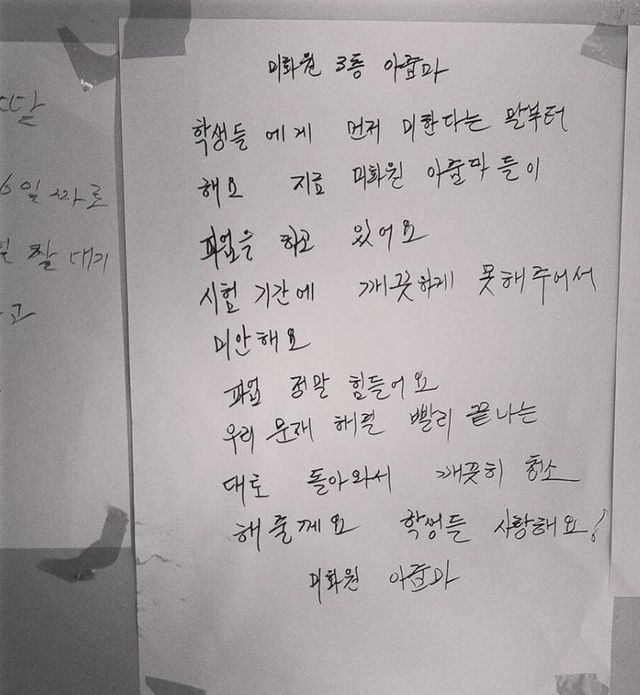 미화원 3동 아줌마
학생들 에게 먼저 미한다는 말부터
해요 지료 미화원 아줌마들이
파업을 하고 있어요
시험 기간에 깨끗하게 못해주어서
미안해요
파업 정말 힘들어요
우리 문재 해결 빨리 끝나는
대로 돌아와서 깨끗히 청소
해줄께요 학생들 사랑해요!
미화원 아줌마
6일 짜로